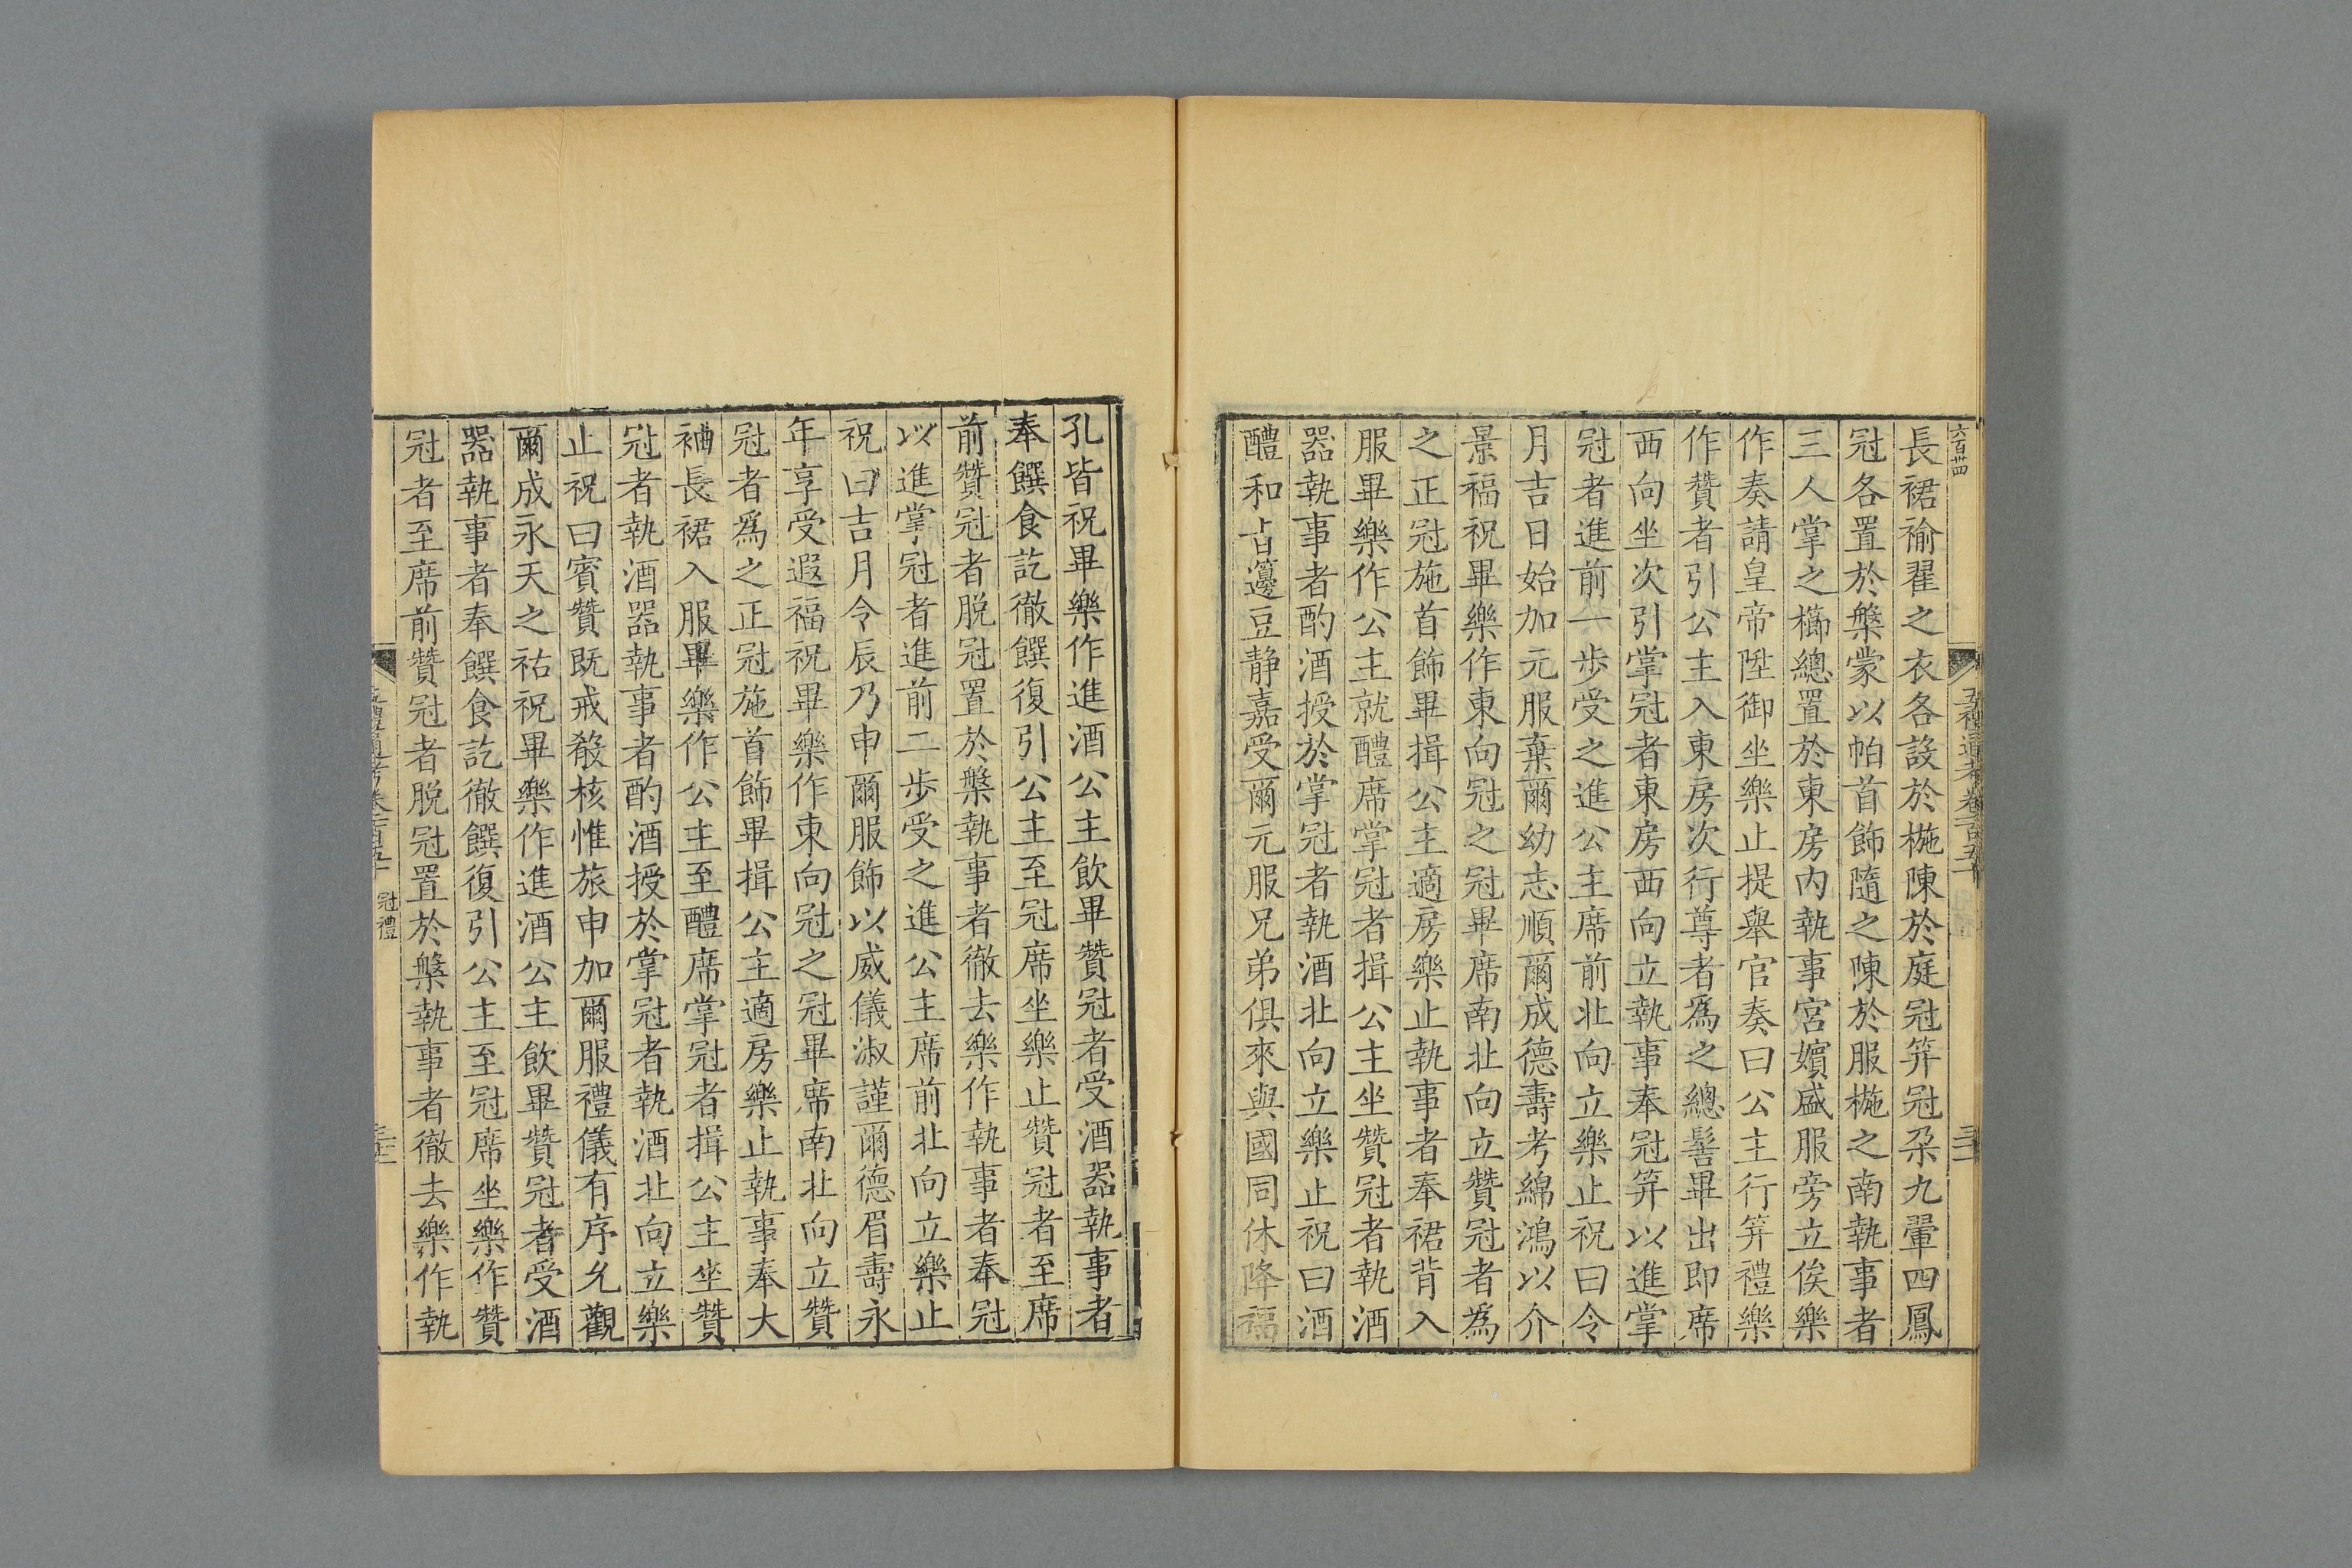 六百卅四
長裙褕翟之衣各設於椸陳於庭冠笄冠朶九翬四鳳
冠各置於槃蒙以帕首飾隨之陳於服椸之南執事者
三人掌之櫛總置於東房內執事宮嬪盛服旁立俟樂
作奏請皇帝陞御坐樂止提舉官奏曰公主行笄禮樂
作贊者引公主入東房次行尊者為之總髻畢出即席
西向坐次引掌冠者東房西向立執事奉冠笄以進掌
冠者進前一步受之進公主席前北向立樂止祝曰令
月吉日始加元服棄爾幼志順爾成德壽考綿鴻以介
景福祝畢樂作東向冠之冠畢席南北向立贊冠者為
之正冠施首飾畢揖公主適房樂止執事者奉裙背入
服畢樂作公主就醴席掌冠者揖公主坐贊冠者執酒
器執事者酌酒授於掌冠者執酒北向立樂止祝曰酒
醴和旨籩豆靜嘉受爾元服兄弟俱來與國同休降福
孔皆祝畢樂作進酒公主飲畢贊冠者受酒器執事者
奉饌食訖徹饌復引公主至冠席坐樂止贊冠者至席
前贊冠者脫冠置於槃執事者徹去樂作執事者奉冠
以進掌冠者進前二步受之進公主席前北向立樂止
祝曰吉月令辰乃申爾服飾以威儀淑謹爾德眉壽永
年享受遐福祝畢樂作東向冠之冠畢席南北向立贊
冠者為之正冠施首飾畢揖公主適房樂止執事奉大
袖長裙入服畢樂作公主至醴席掌冠者揖公主坐贊
冠者執酒器執事者酌酒授於掌冠者執酒北向立樂
止祝曰賓贊既戒殽核惟旅申加爾服禮儀有序允觀
爾成永天之祜祝畢樂作進酒公主飲畢贊冠者受酒
器執事者奉饌食訖徹饌復引公主至冠席坐樂作贊
冠者至席前贊冠者脫冠置於槃執事者徹去樂作執
冠禮